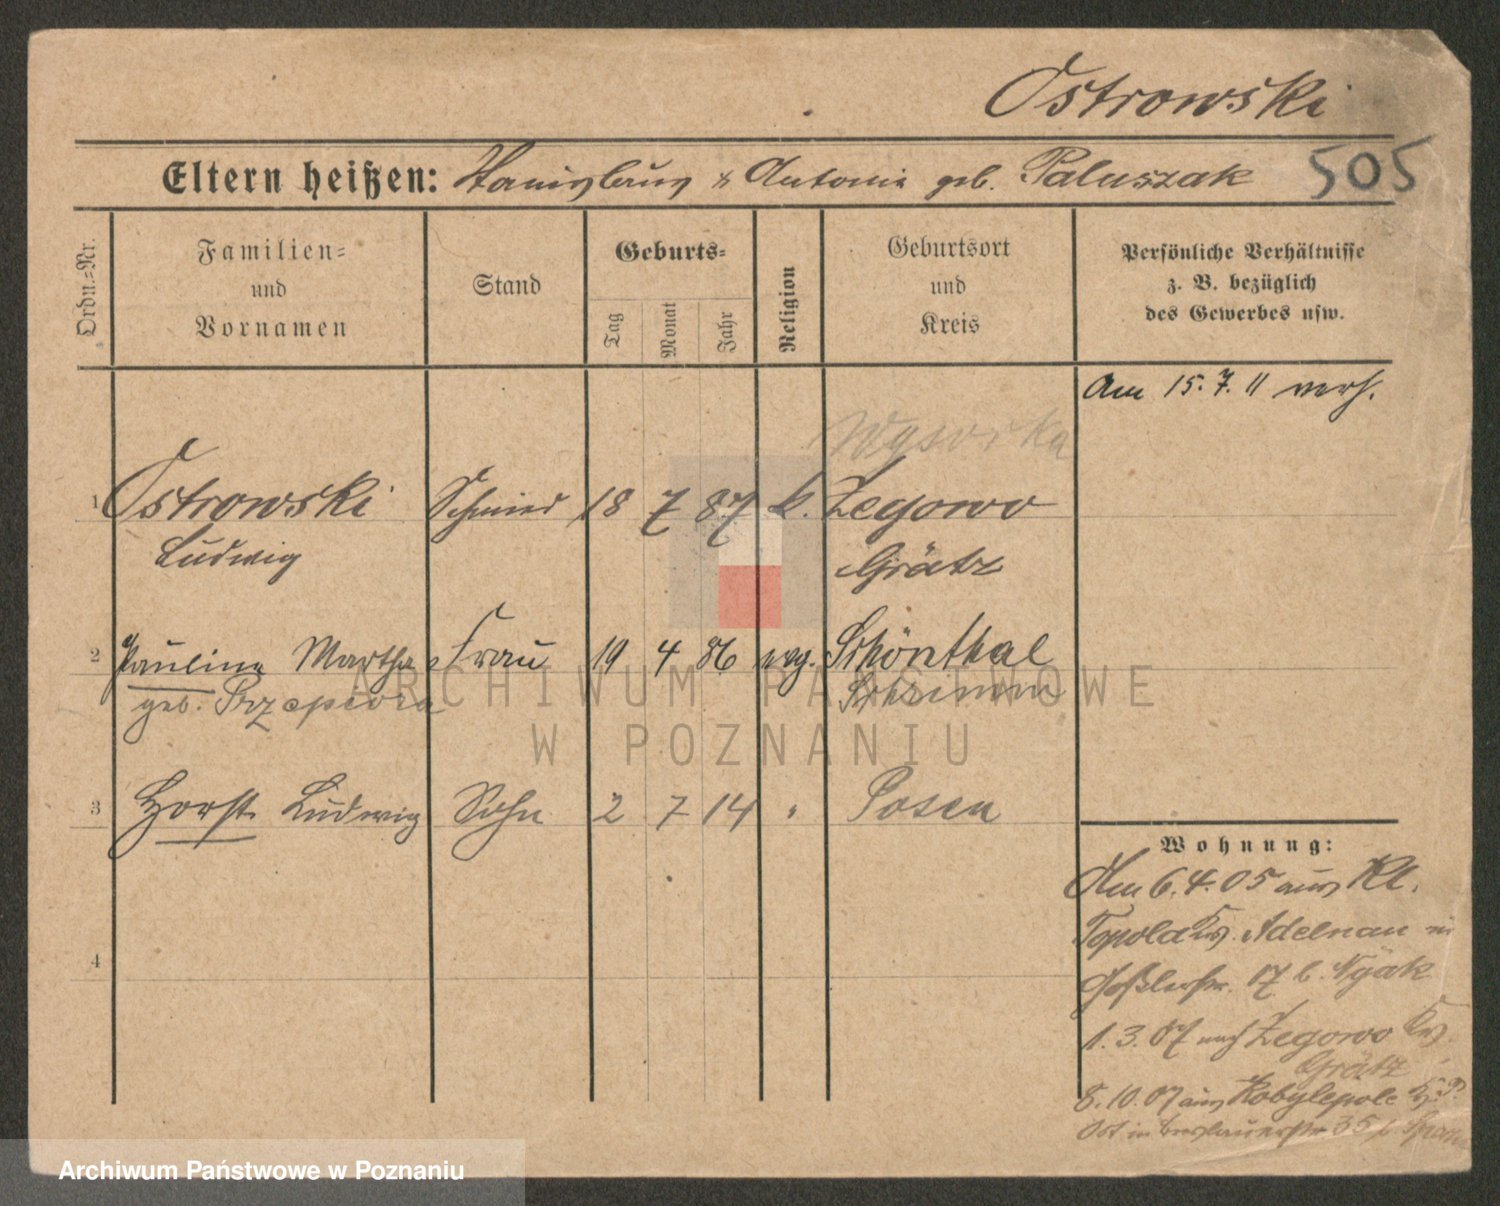 Ostrowski
Eltern heißen: Stanislaus & Antonie geb. Paluszak 505
Ordn.-Nr.
Familien-
und
Vornamen
Stand
Geburts-
Tag
Monat
Jahr
Religion
Geburtsort
und
Kreis
Persönliche Verhältnisse
z. B. bezüglich
des Gewerbes usw.
Am 15.7.11 verh.
Wysorka
1 Ostrowski Schmied 18 7 87 k. Zegowo
Ludwig Grätz
2 Paulina Martha Frau 19 4 86 evg. Schönthal
geb. Schrimm
3 Horst Ludwig Sohn 2 7 14 " Posen
4
Wohnung:
Am 6.4.05 aus Kl.
Topola Krs. Adelnau in
17 b.
1.3.07 nach Zegowo Krs.
Grätz
8.10.07 aus Kobylepole Kr. P.
Ost in Breslauerstr 35 b.
ARCHIWUM PAŃSTWOWE
W POZNANIU
Archiwum Państwowe w Poznaniu